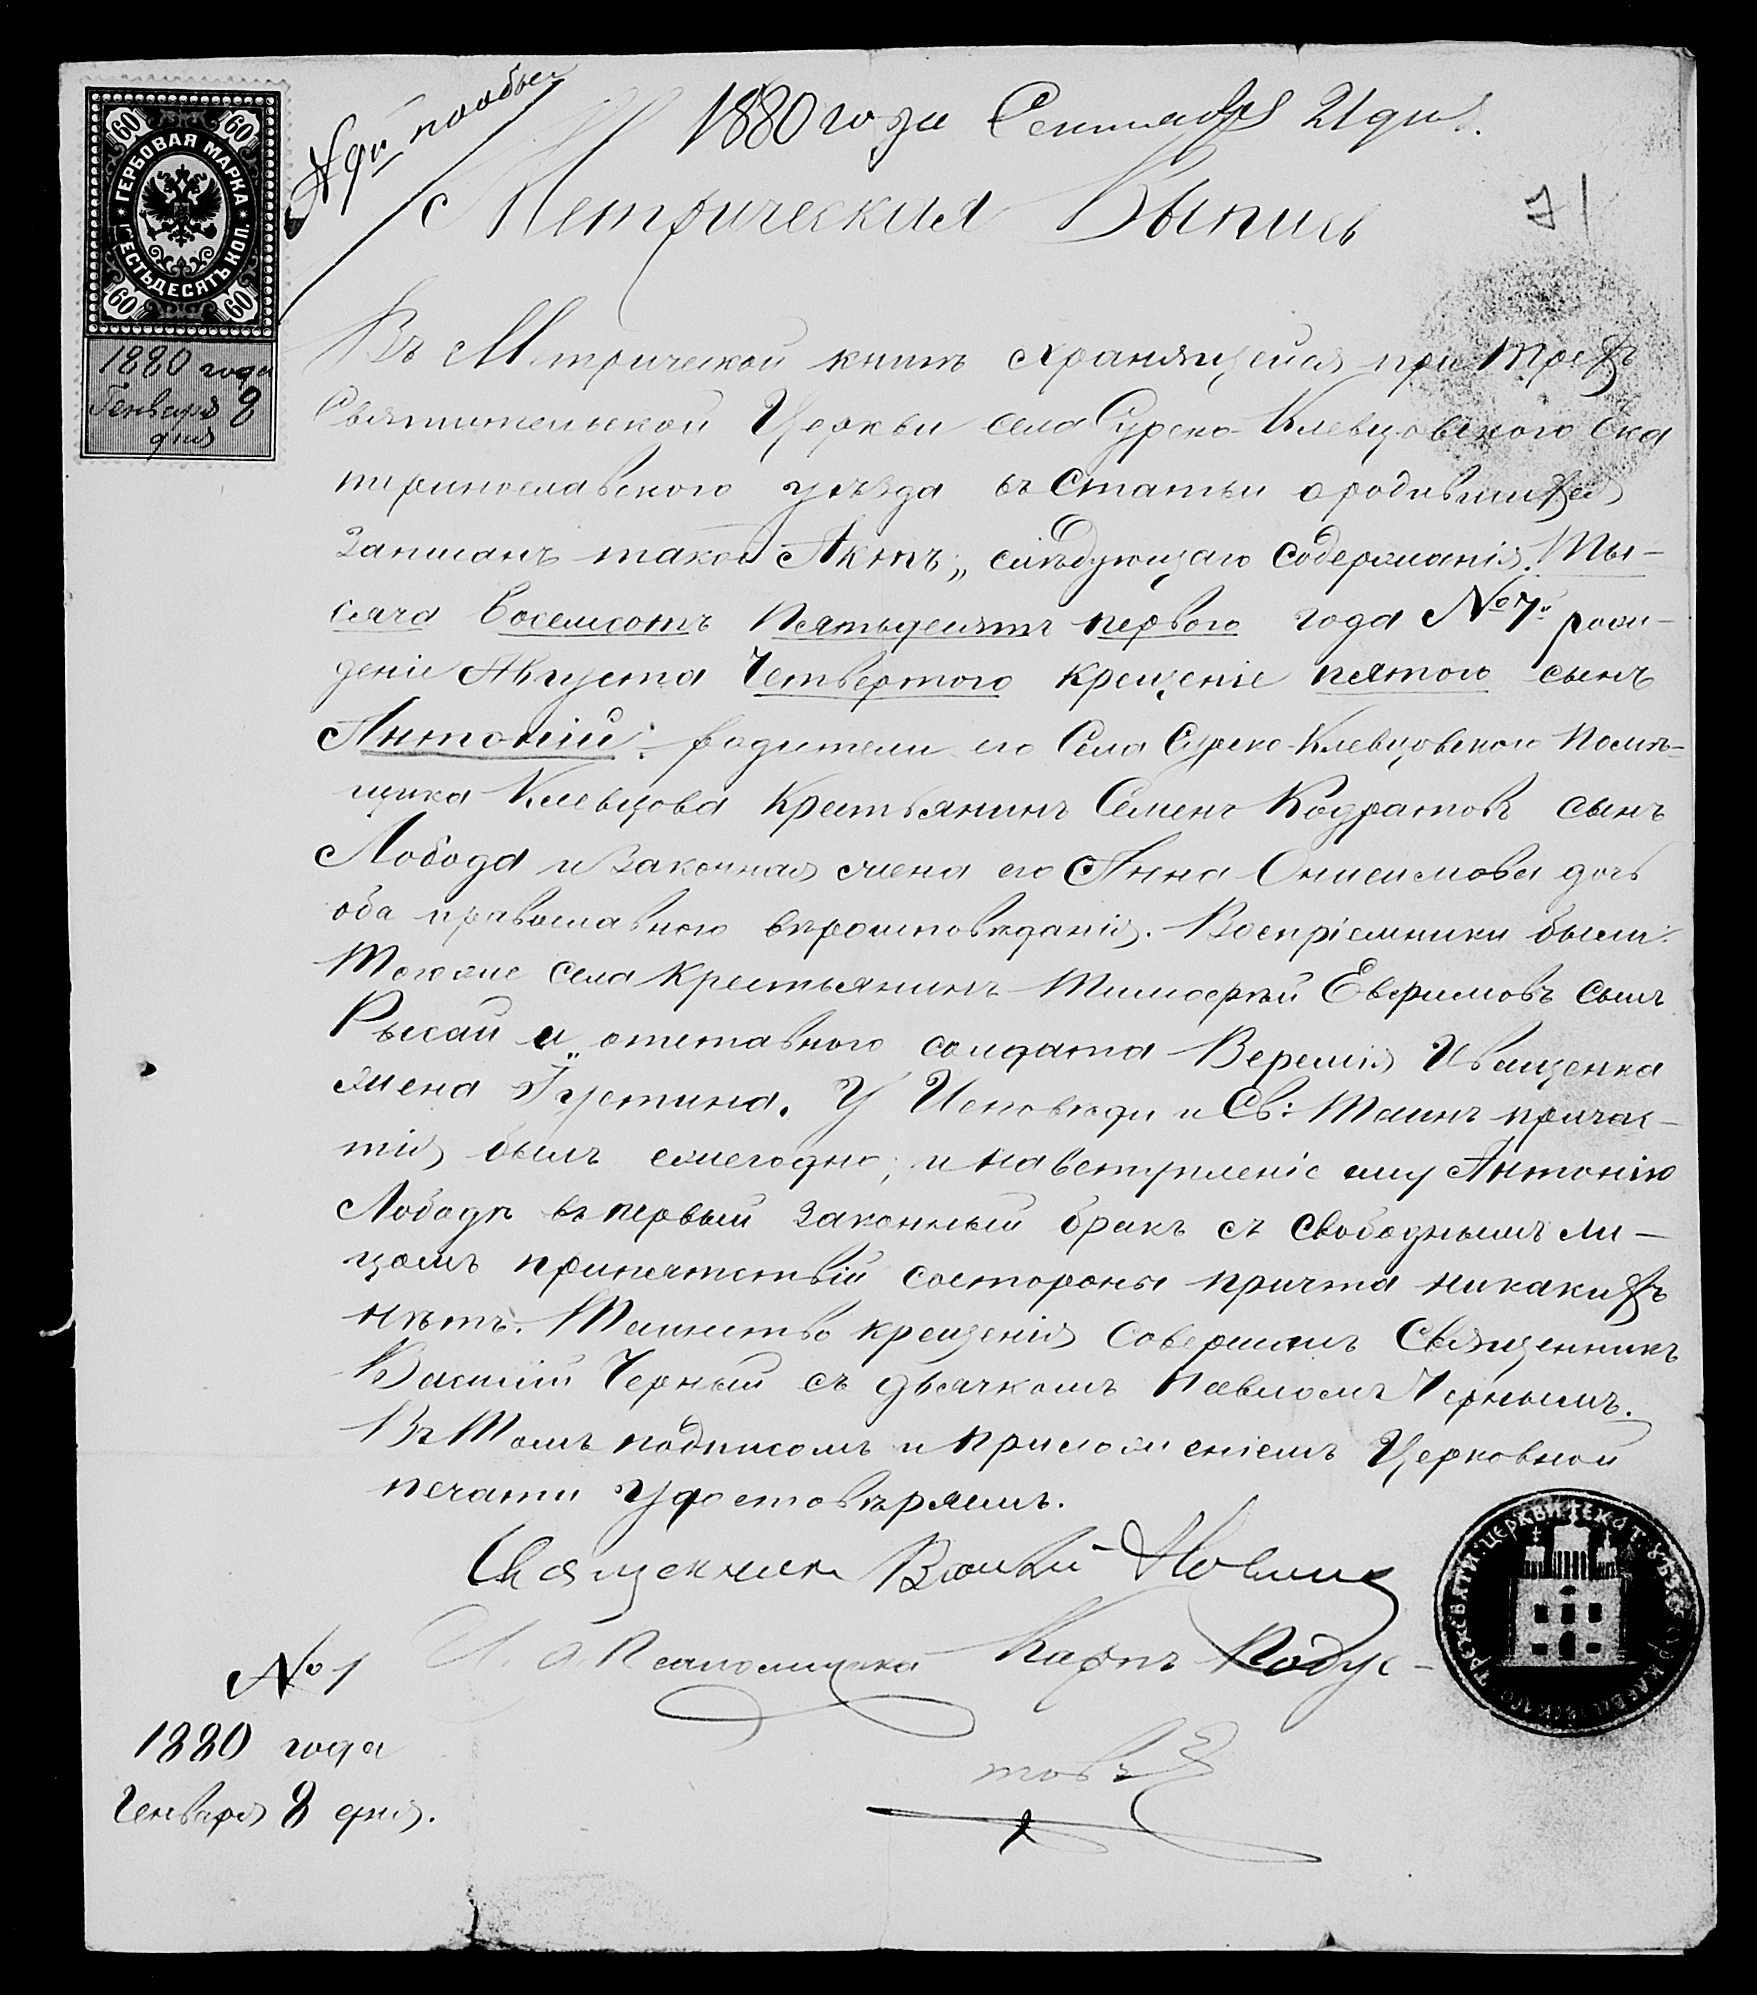 ГЕРБОВАЯ МАРКА
ШЕСТЬДЕСЯТЪ КОП.
60 60
60 60
1880 года
Генваря 8
дня
1880 года Сентября 21 дня.
71
Метрическая Выпись
Въ Метрической книгѣ хранящейся при Трехъ
Святительской Церкви села Сурско-Клевцовского Ека
теринославского уѣзда въ статьи о родившихся
Записанъ таковъ Актъ, „слѣдующаго содержанія. Ты-
сяча Восемсотъ Пятьдесятъ первого года № 7й рож-
деніе Августа Четвертого крещеніе пятого сынъ
Антоній: родители его Села Сурско-Клевцовского Помѣ-
щика Клевцова Крестьянинъ Семенъ Кодратовъ сынъ
Лобода и Законная жена его Анна Онисимова дочь
оба православного вѣроисповѣданія. Воспріемники были:
Тогоже села Крестьянинъ Тимофѣй Евфимовъ сынъ
и отставного солдата Иващенка
жена Густина. У Исповѣди и Св: Таинъ причас-
тія былъ ежегодно; и на вступленіе ему Антонію
Лободѣ въ первый Законный бракъ съ свободнымъ ли-
цомъ препятствій состороны причта никакихъ
нѣтъ. Таинство крещенія совершалъ Священникъ
Василій Черный съ дьячкомъ Павломъ Чернымъ.
Въ Томъ подписомъ и приложеніемъ Церковной
печати удостовѣряемъ.
Священникъ Василій
И. д. Псаломщика Карпъ
товъ
№ 1
1880 года
Генваря 8 дня.